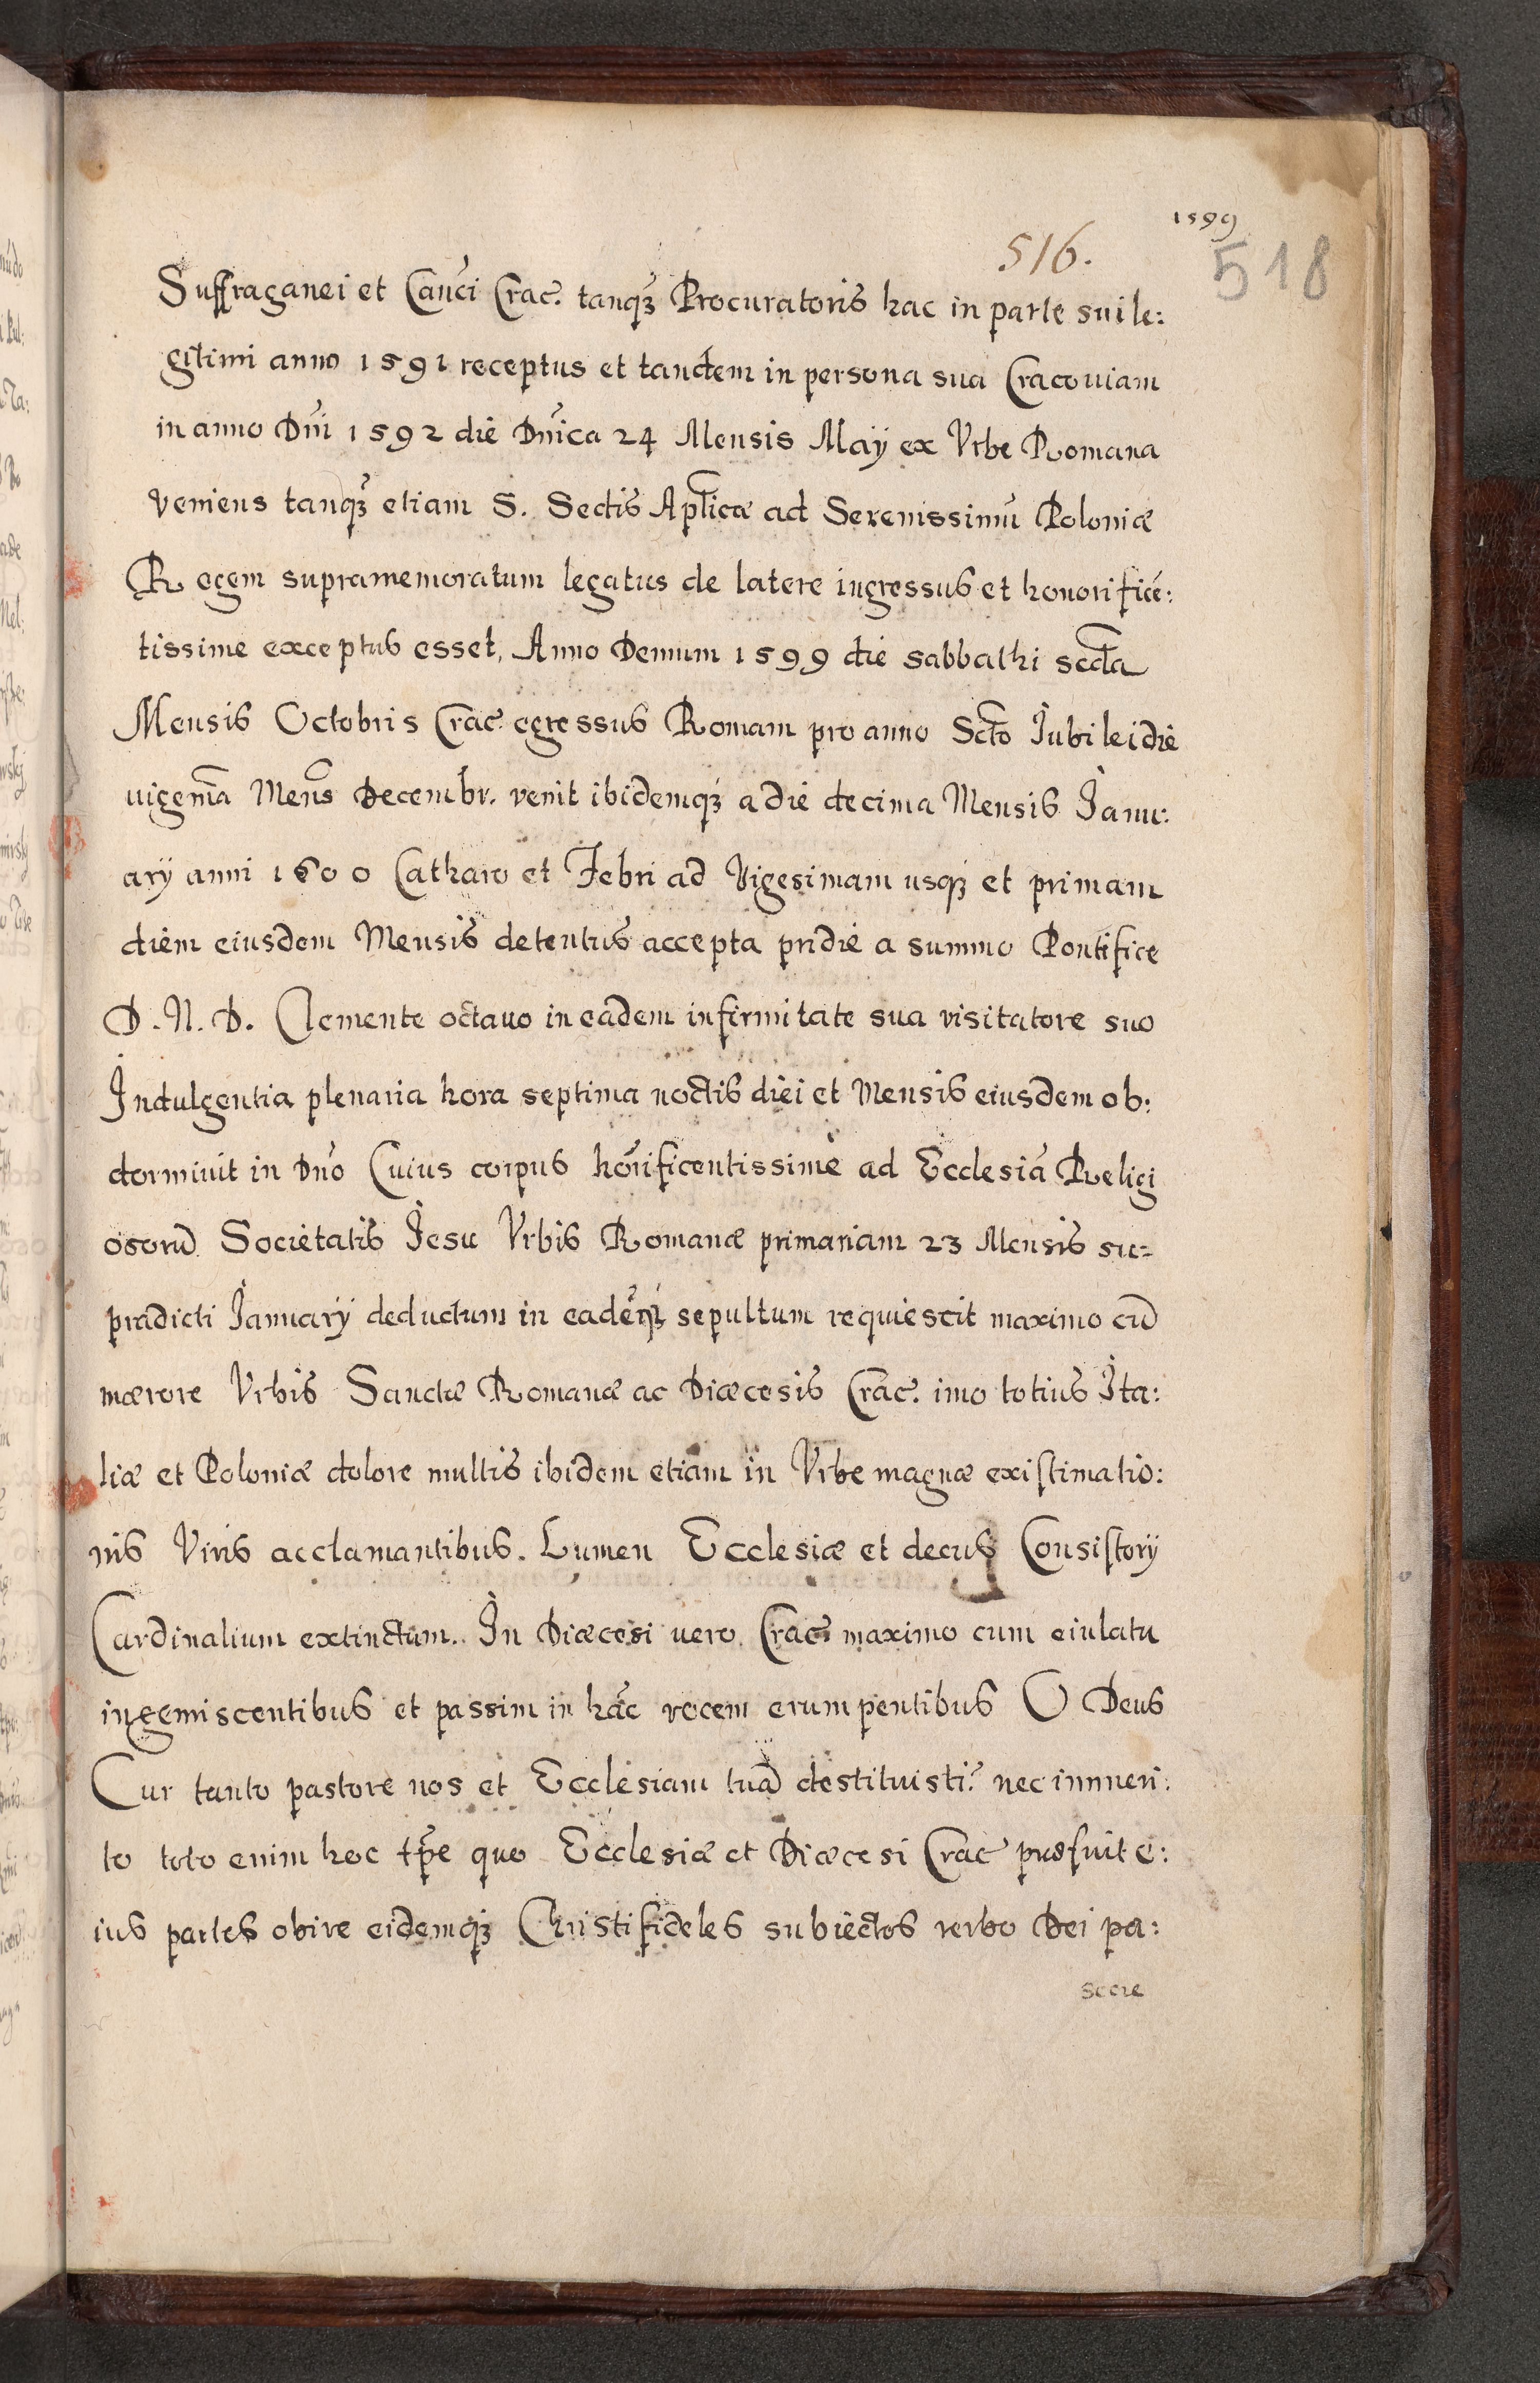 1599
516.
518
Suffraganei et Canci Crac. tanqȝ Procuratoris hac in parte sui le:
gitimi anno 1591 receptus et tandem in persona sua Cracouiam
in anno Dni 1592 die Dnica 24 Mensis Maÿ ex Vrbe Romana
veniens tanqȝ etiam S. Sedis Aplicæ ad Serenissimū Poloniæ
Regem supramemoratum legatus de latere ingressus et honorificē:
tissime exceptus esset, Anno Demum 1599 die sabbathi scda
Mensis Octobris Crac. egressus Romam pro anno Scto Jubilei die
uigema Mens Decembr. venit ibidemqȝ a die decima Mensis Janu:
arÿ anni 1600 Catharo et Febri ad Vigesimam usqȝ et primam
diem eiusdem Mensis detentus accepta pridie a summo Pontifice
D. N. D. Clemente octauo in eadem infirmitate sua visitatore suo
Indulgentia plenaria hora septima noctis diei et Mensis eiusdem ob:
dormiuit in Dno Cuius corpus honrificentissime ad Ecclesiā Religi
osorū Societatis Jesu Vrbis Romanæ primariam 23 Mensis su=
pradicti Januarÿ deductum in eadēqȝ sepultum requiescit maximo cū
mærore Vrbis Sanctæ Romanæ ac Diæcesis Crac. imo totius Ita:
liæ et Poloniæ dolore multis ibidem etiam in Vrbe magnæ existimatio:
nis Viris acclamantibus. Lumen Ecclesiæ et decus Consistorÿ
Cardinalium extinctum. In Diæcesi uero Crac. maximo cum eiulatu
ingemiscentibus et passim in hāc vocem erumpentibus O Deus
Cur tanto pastore nos et Ecclesiam tuā destituisti? nec immeri:
to toto enim hoc tpe quo Ecclesiæ et Diæcesi Crac præfuit e:
ius partes obire eidemqȝ Christifideles subiectos verbo Dei pa:
scere